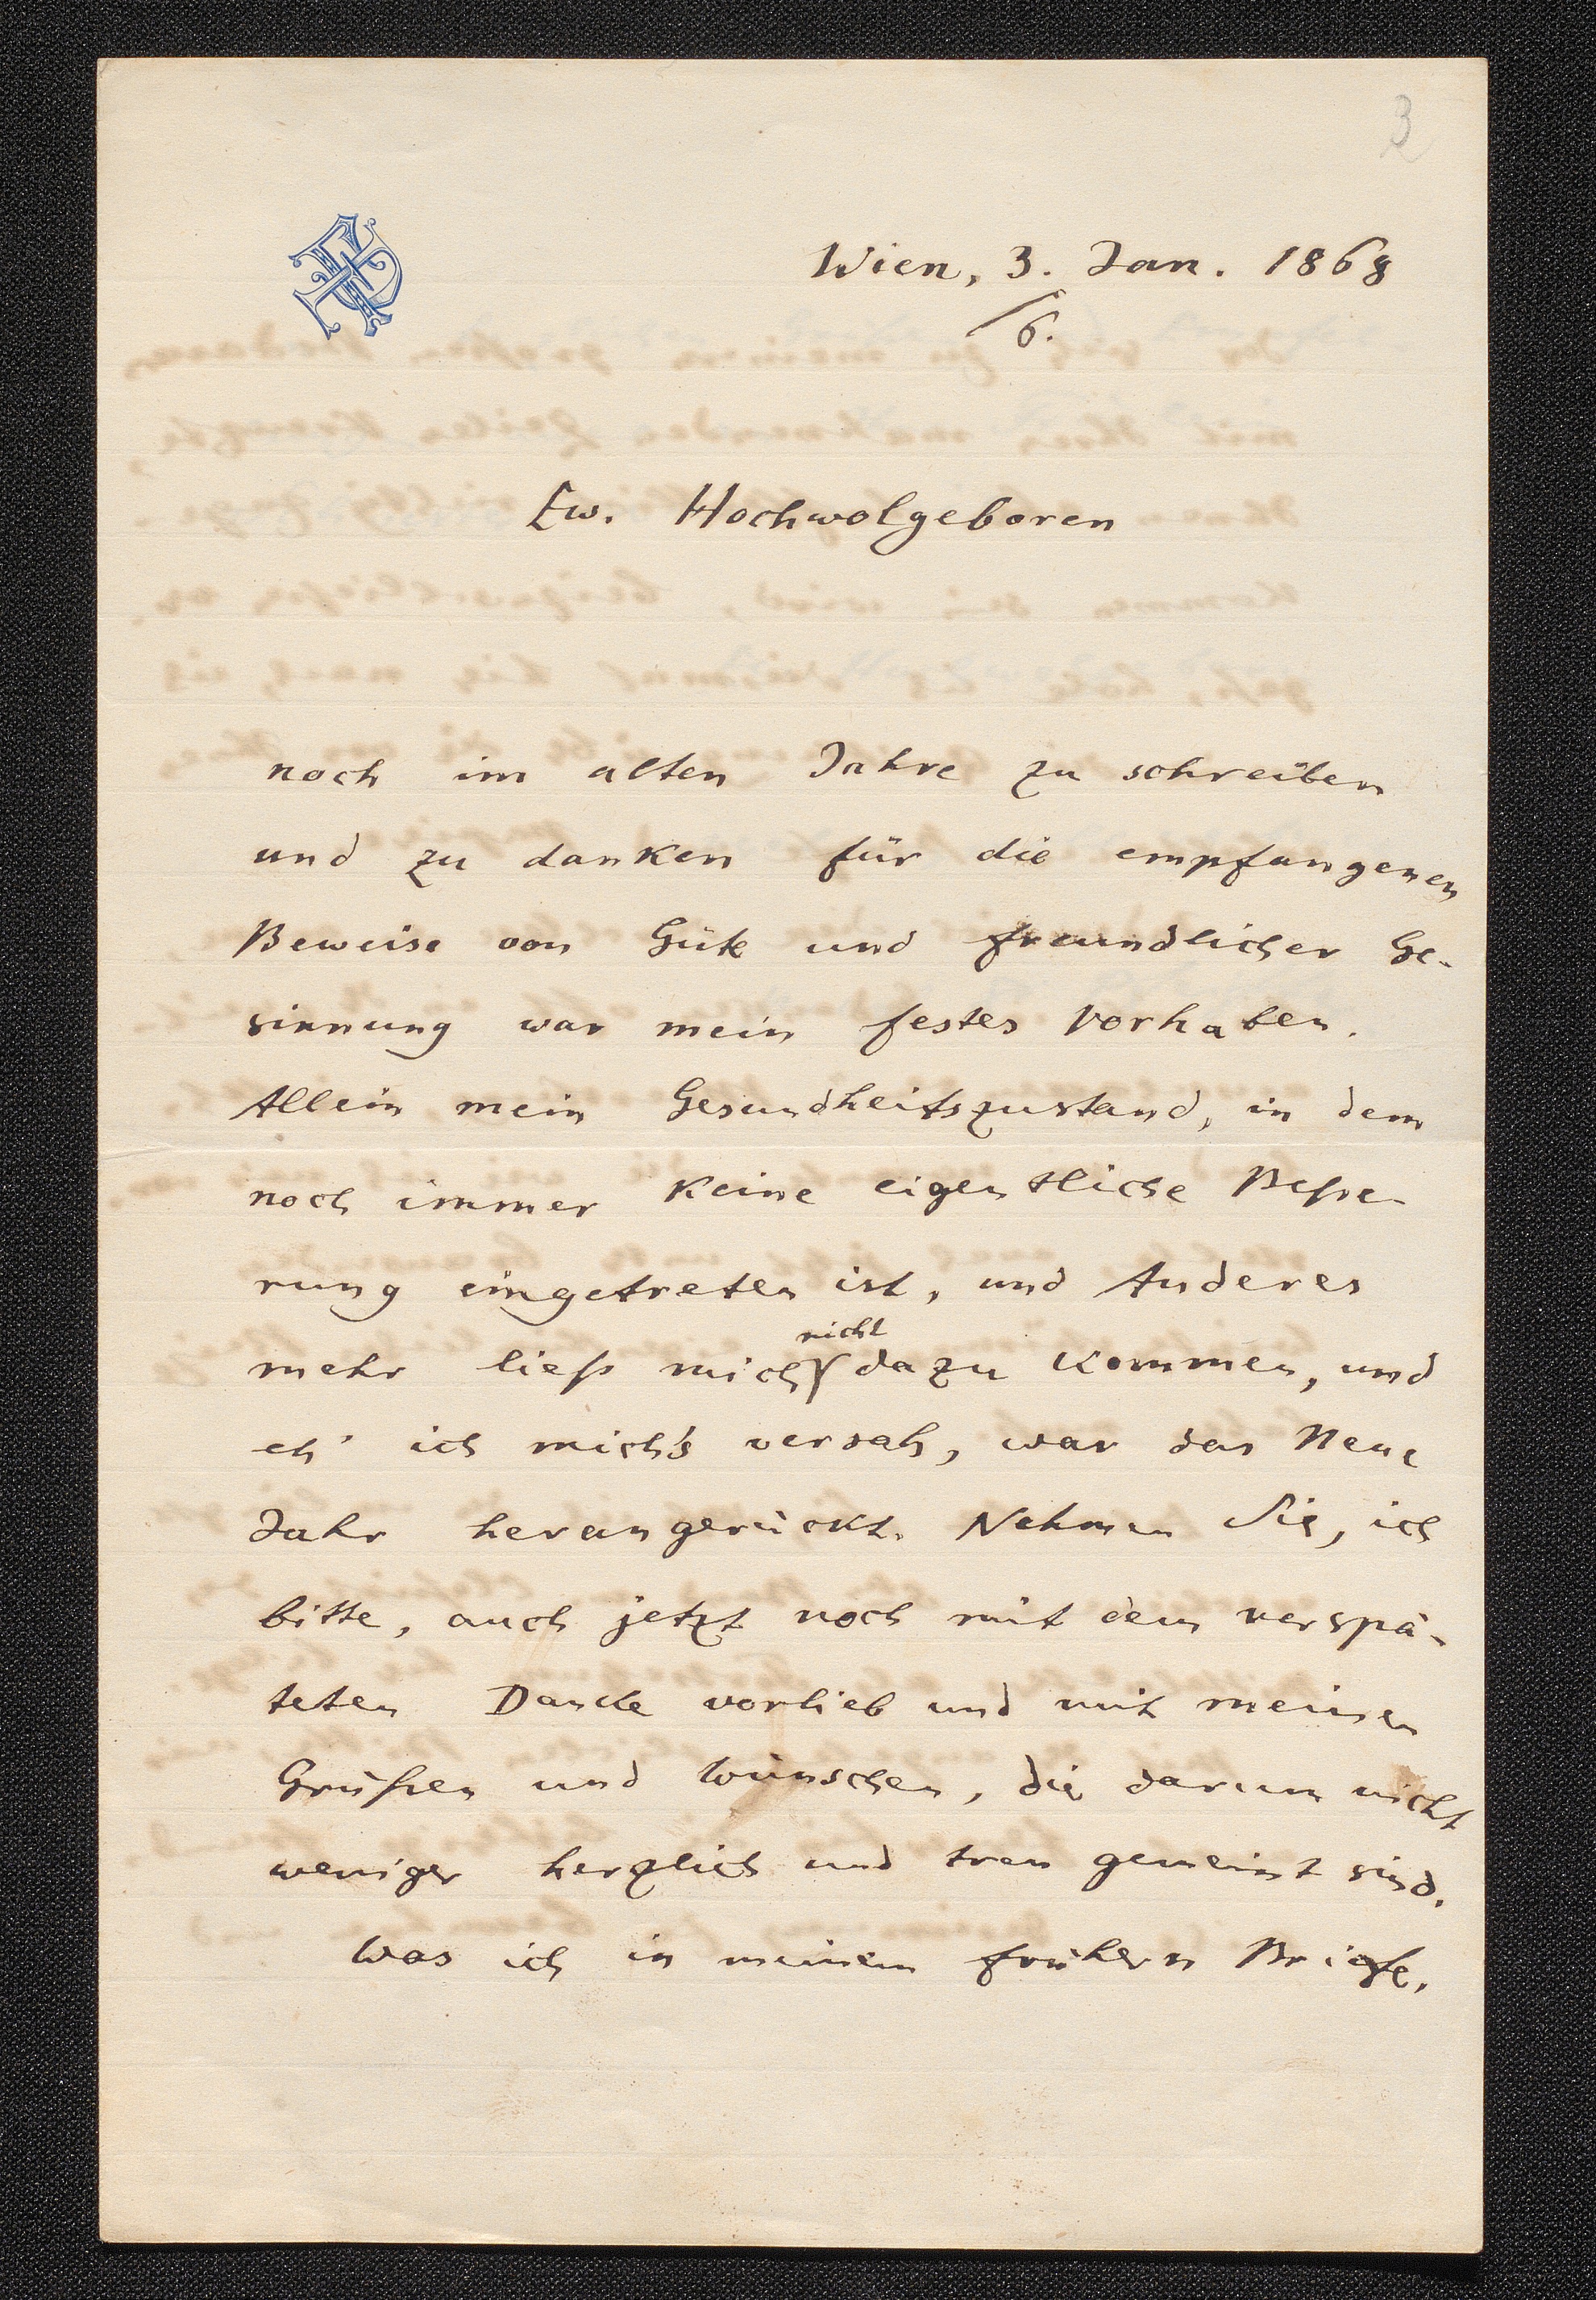 3
Wien, 3. Jan. 1868
/6.
Ew. Hochwolgeboren
noch im alten Jahre zu schreiben
und zu danken für die empfangenen
Beweise von Güte und freundlicher Ge-
sinnung war mein festes Vorhaben.
Allein mein Gesundheitszustand, in dem
noch immer keine eigentliche Beße-
rung eingetreten ist, und Anderes
mehr ließ mich nicht dazu kommen, und
eh' ich mich's versah, war das Neue
Jahr herangerückt. Nehmen Sie, ich
bitte, auch jetzt noch mit dem verspä-
teten Danke vorlieb und mit meinen
Grüßen und Wünschen, die darum nicht
weniger herzlich und treu gemeint sind.
Was ich in meinem frühern Briefe,